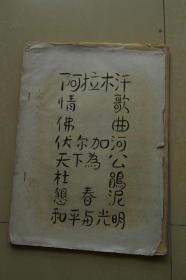 阿拉木汗
情 歌
佛 曲
伏尔加河
天下為公
杜 鵑
春 泥
和平与光明